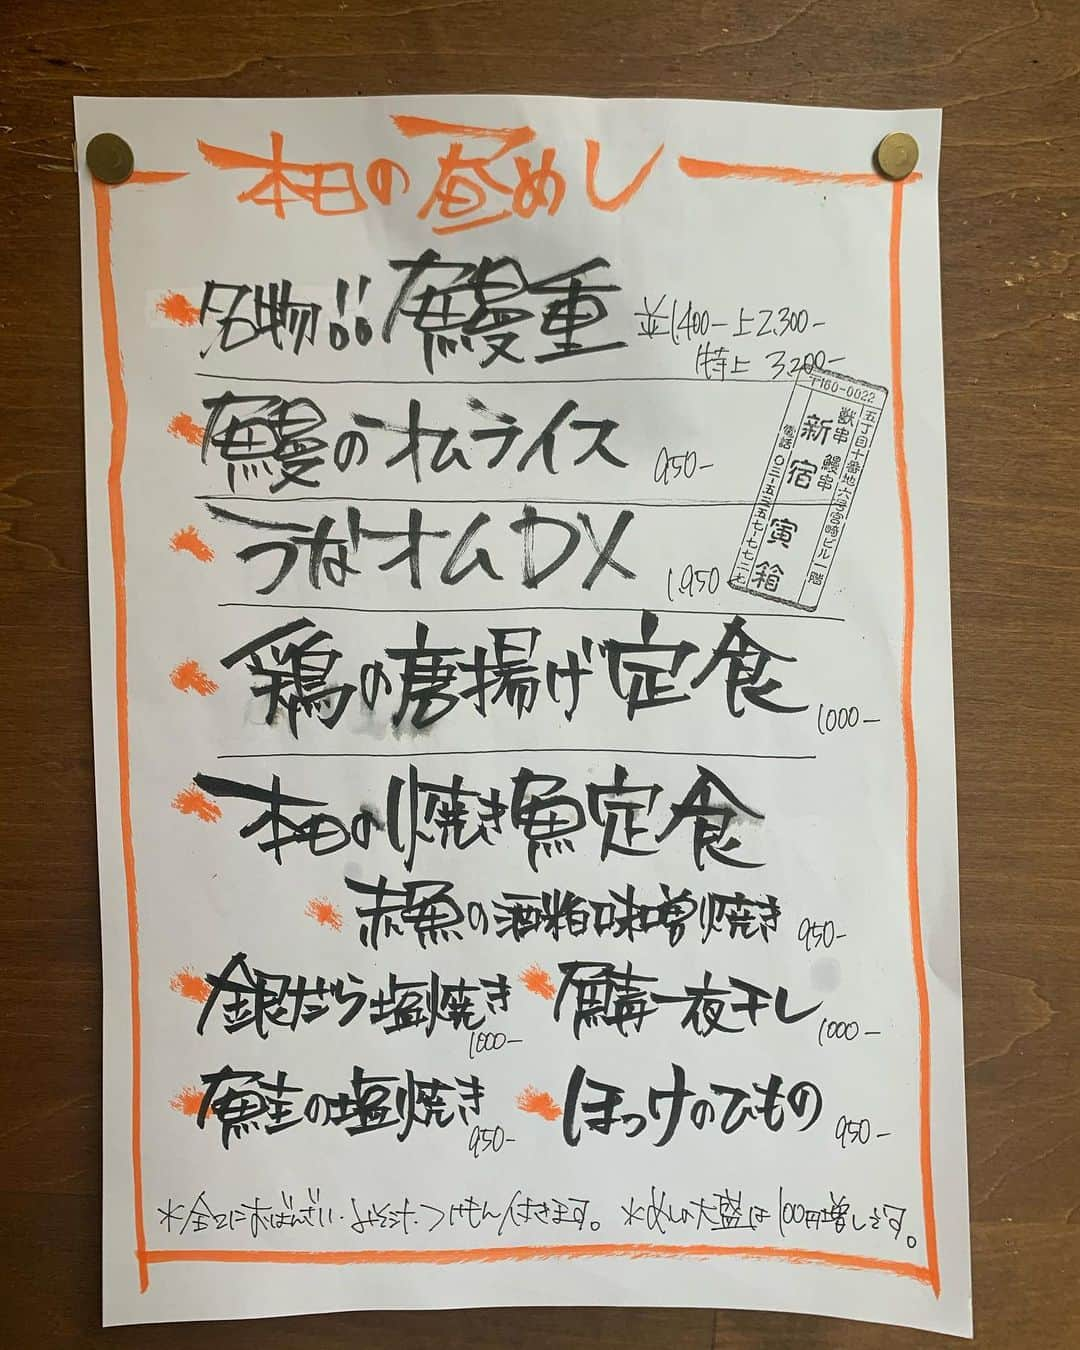 本日の昼めし
名物!! 鰻重 並1,400- 上2,300-
特上 3,200-
鰻のオムライス 950-
うなオムDX 1,950
鶏の唐揚げ定食 1000-
本日の焼き魚定食
赤魚の酒粕味噌焼き 950-
銀だら塩焼き 1000- 鯖一夜干し 1000-
鮭の塩焼き 950- ほっけのひもの 950-
*全てにおばんざい・みそ汁・つけもん付きます。 *めしの大盛は100円増しです。
〒160-0022
五丁目十番地六号宮崎ビル一階
獣串 鰻串
新宿 寅箱
電話〇三-五三五七-七七二七